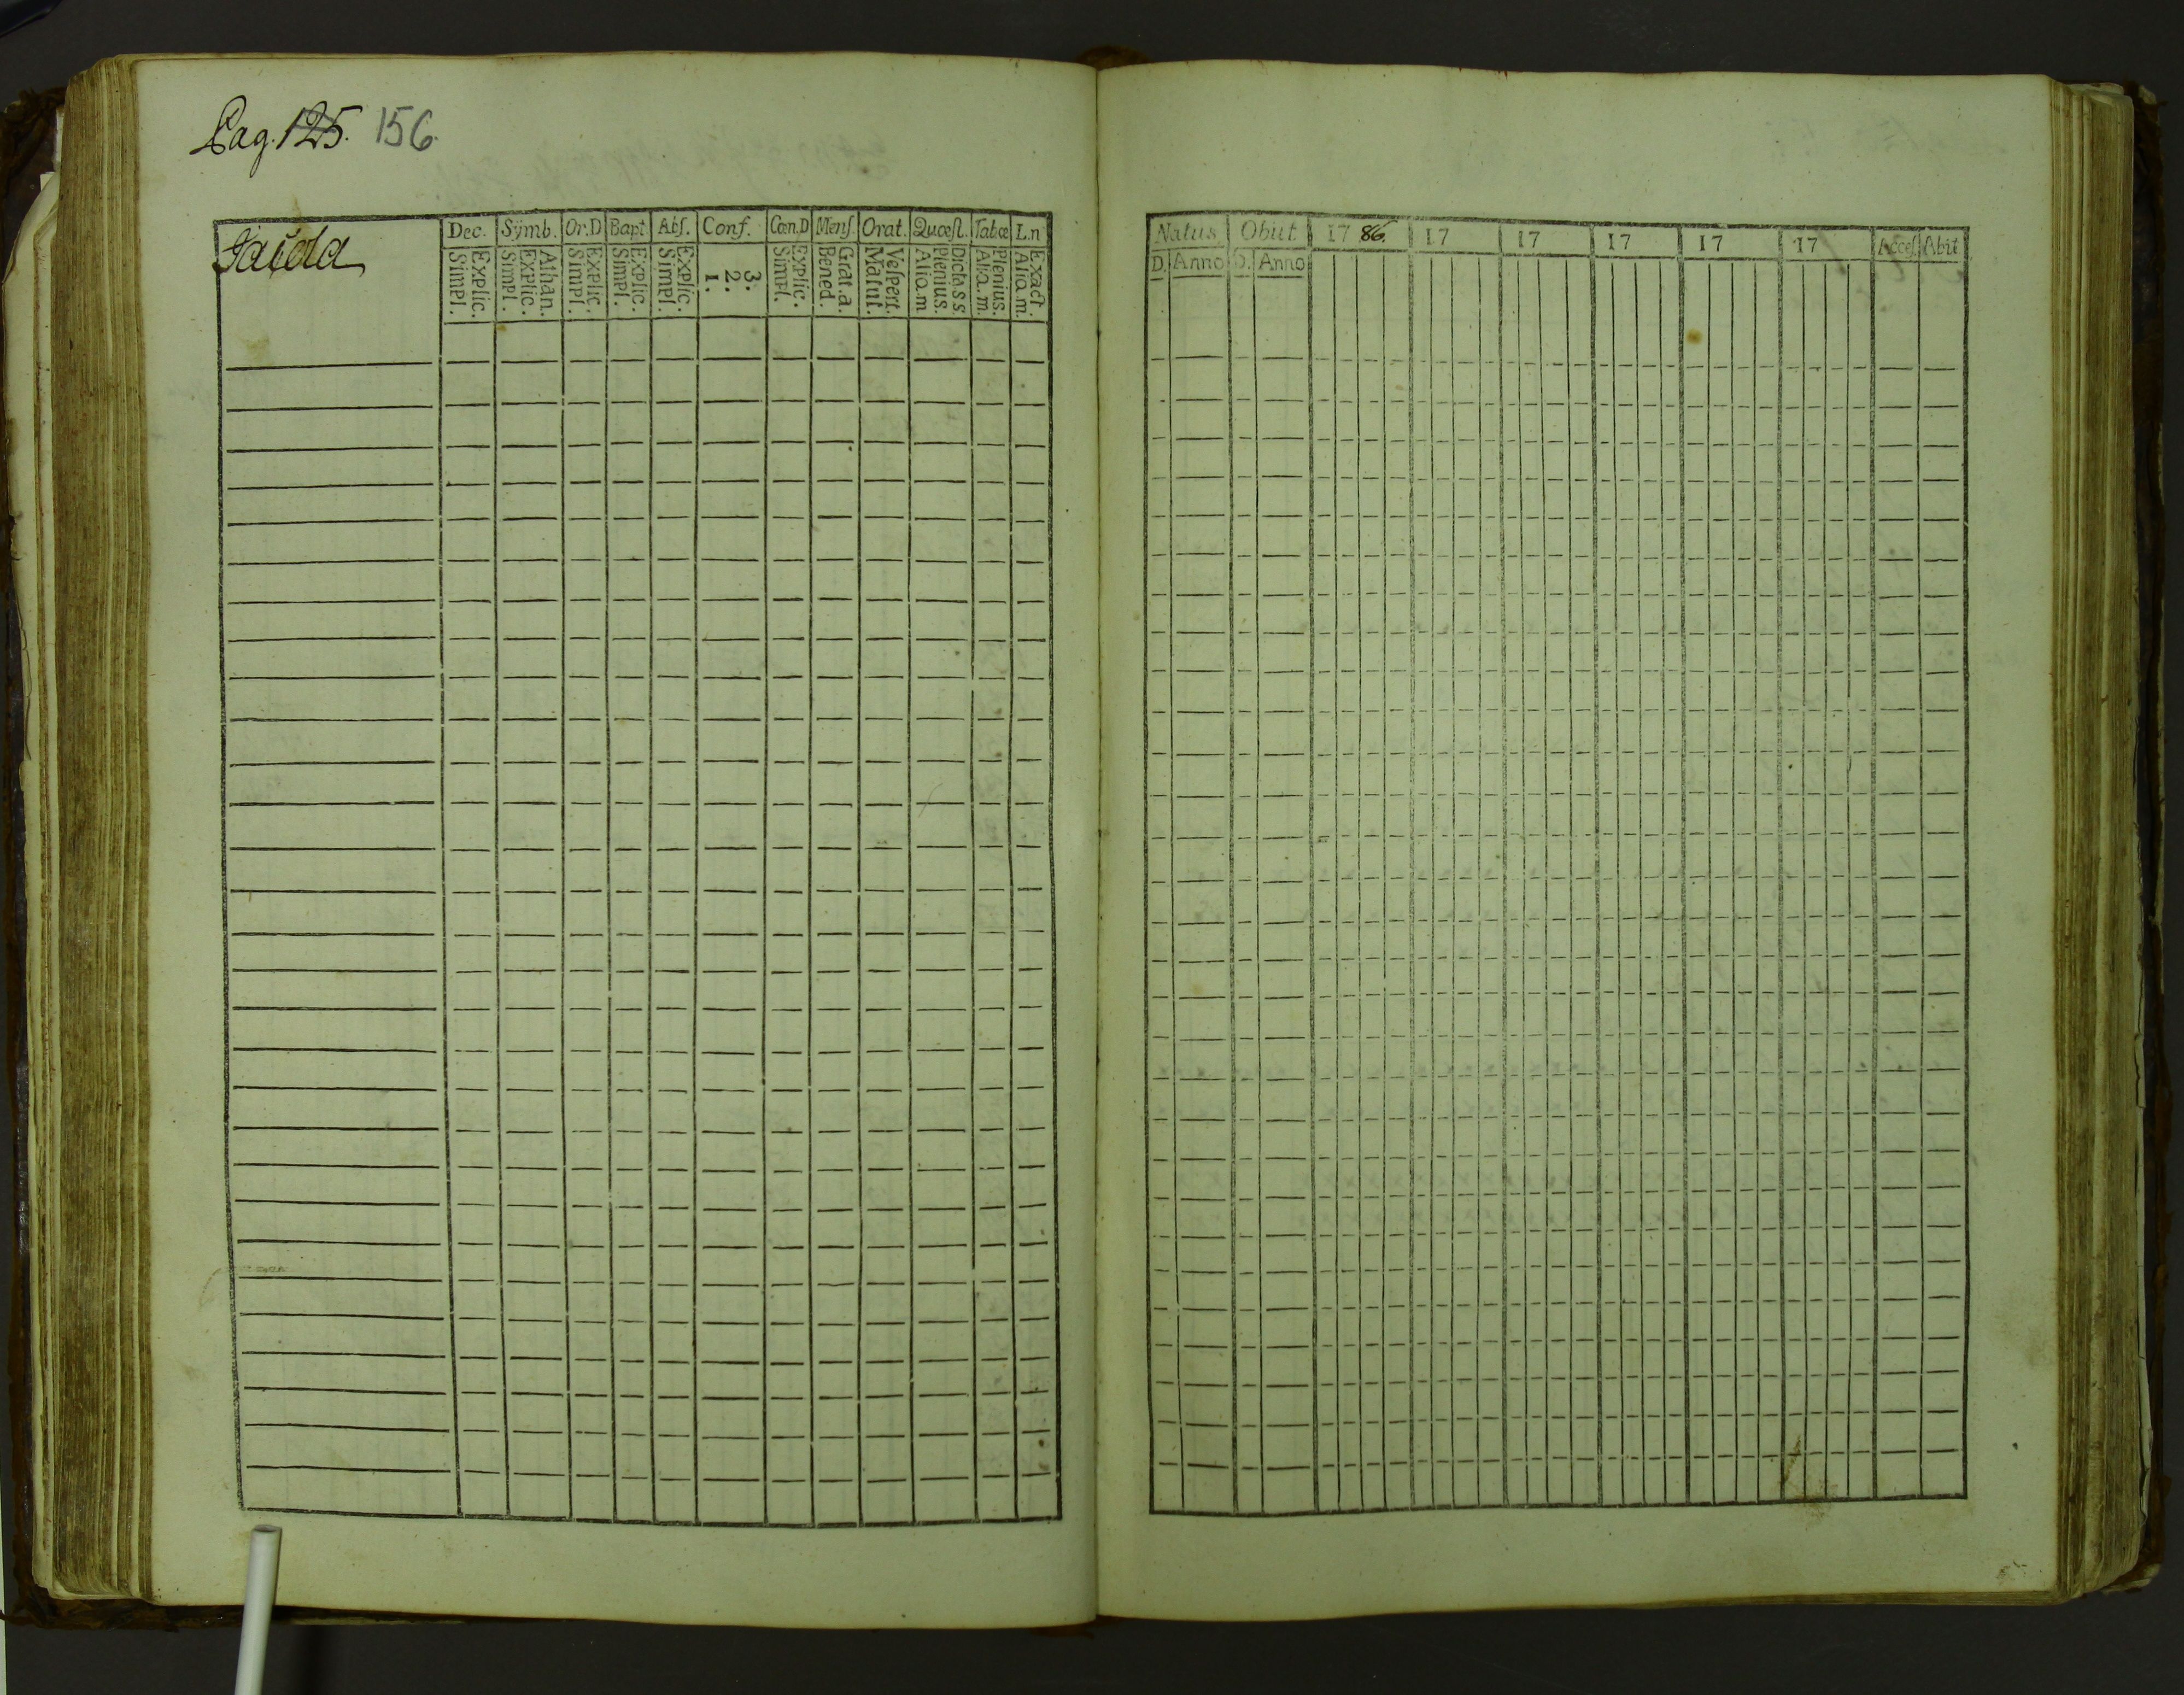 Pag. 125. 156.
Dec. Symb. Or.D Bapt Abſ. Conf. Cœn.D Menſ. Orat. Quæſt. Tabæ L.n
Explic. Simpl. Athan. Explic. Simpl. Explic. Simpl. Explic. Simpl. Explic. Simpl. 3. 2. 1. Explic. Simpl. Grat. a. Bened. Veſpert. Matut. Dicta S S. Plenius. Aliq. m Plenius. Aliq. m. Exact. Aliq. m.
Natus. Obiit. 17 86. 17 17 17 17 17 Acceſ. Abit
D. Anno D. Anno